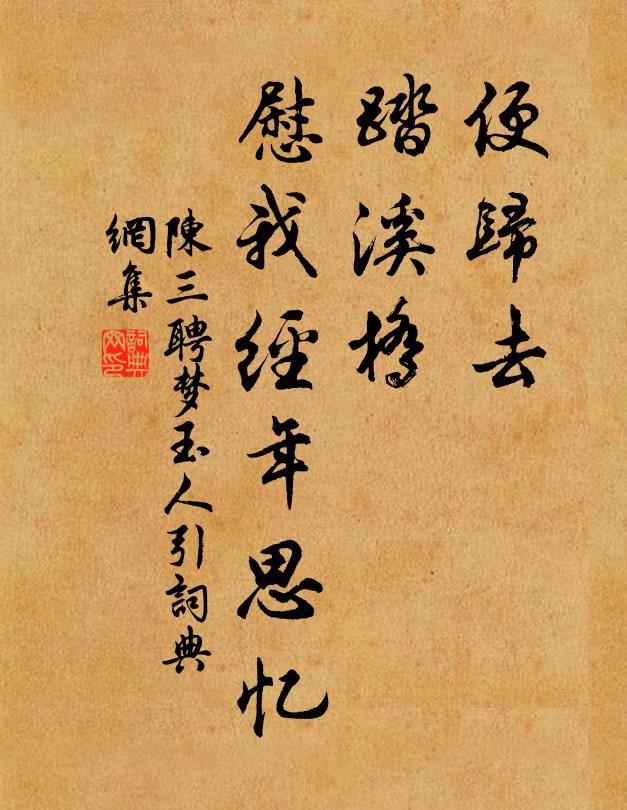 便歸去
踏溪橋
慰我經年思忆
陳三聘梦玉人引詞典
網集
詞典网印